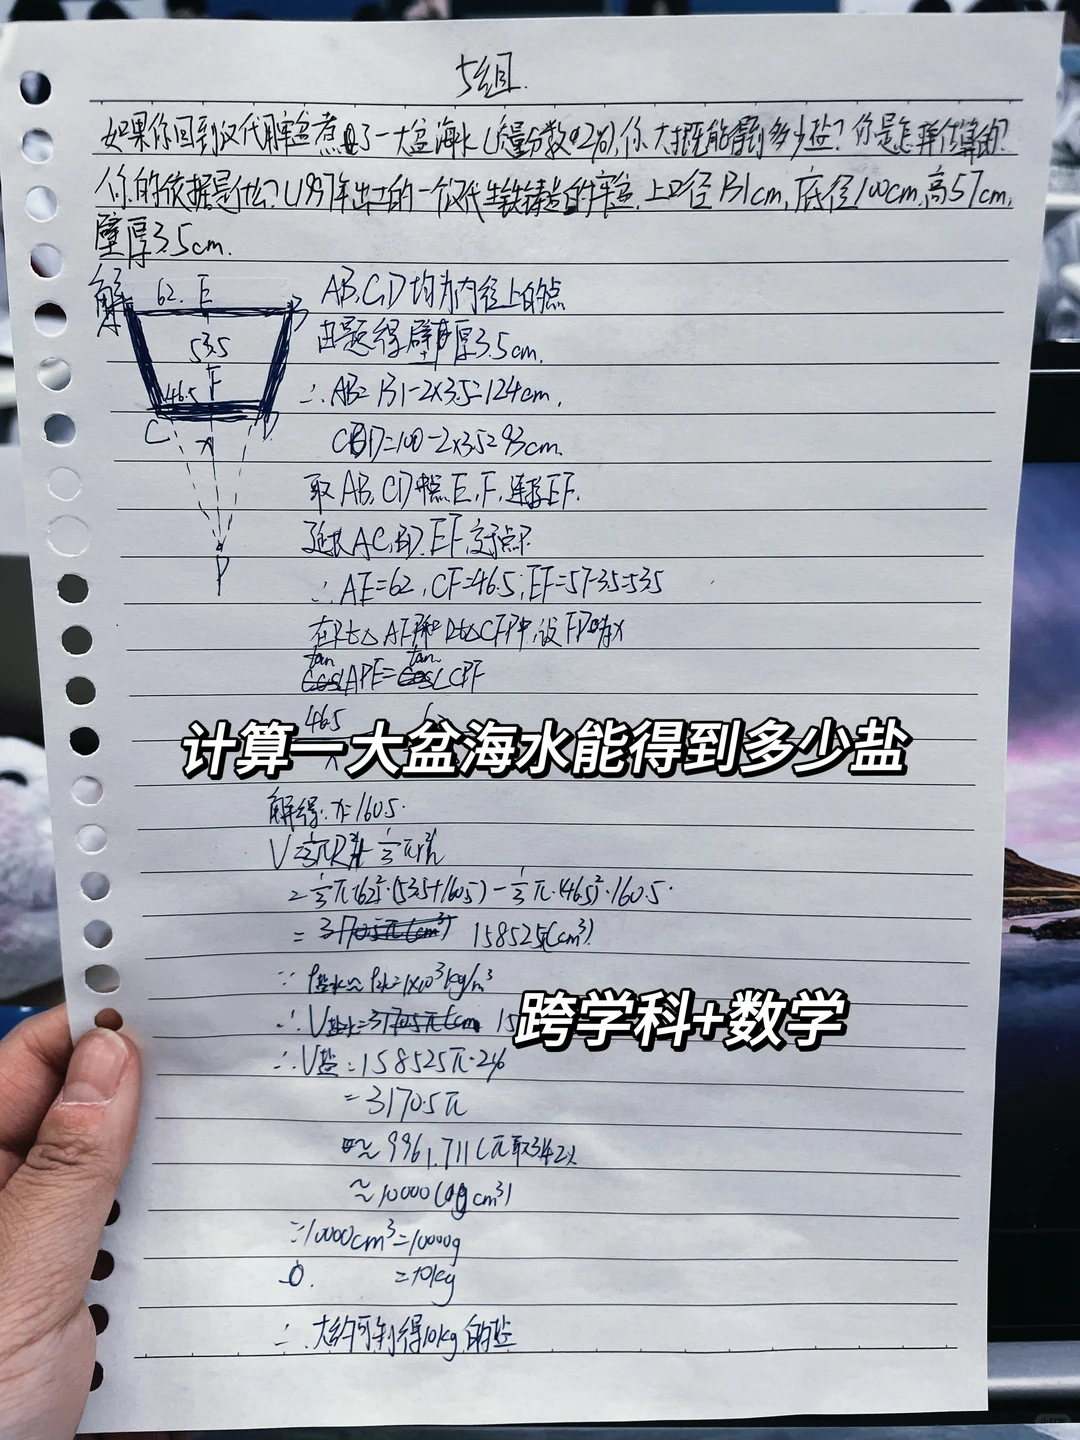 5组.
如果你回到汉代用牢盆煮了一大盆海水(质量分数2%),你大概能得到多少盐?你是怎样估算的?
你的依据是什么?(1997年出土的一个汉代生铁铸造的牢盆,上口径131cm,底径100cm,高57cm,
壁厚3.5cm.
解
62. E B
53.5
46.5 F
C D
x
P
AB,CD均为内径上的点
由题得壁厚3.5cm.
∴AB=131-2×3.5=124cm.
CD=100-2×3.5=93cm.
取AB,CD中点E,F,连接EF.
延长AC,BD,EF,交于点P.
∴AE=62,CF=46.5,EF=57-3.5=53.5
在Rt△AEP和Rt△CFP中,设FP为x
tan∠APE=tan∠CPF
46.5
计算一大盆海水能得到多少盐
解得:x=160.5.
V=⅓πR²H-⅓πr²h
=⅓π·(62)²·(53.5+160.5)-⅓π·(46.5)²·160.5.
=158525π(cm³)
∵ρ盐水≈ρ水=1×10³kg/m³
∴V盐水=
跨学科+数学
∴V盐=158525π·2%
=3170.5π
≈9961.711(π取3.142)
≈10000(cm³)
∵10000cm³=10000g
=10kg
∴大约可制得10kg的盐